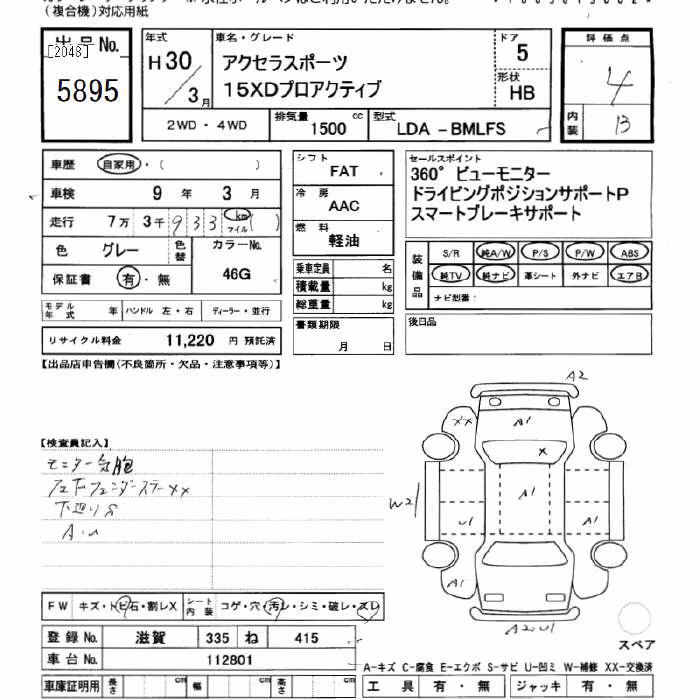 (複合機)対応用紙
出品No.
[2048]
5895
年式
H30
3月
車名・グレード
アクセラスポーツ
15XDプロアクティブ
ドア
5
形状
HB
評価点
4
内装
B
2WD・4WD
排気量
1500 cc
型式
LDA -BMLFS
車歴 自家用・( )
車検 9年 3月
走行 7万 3千 933 km マイル ( )
色 グレー
色替
カラーNo.
46G
保証書 有・無
シフト
FAT
冷房
AAC
燃料
軽油
乗車定員 名
積載量 kg
総重量 kg
書類期限
月 日
セールスポイント
360°ビューモニター
ドライビングポジションサポートP
スマートブレーキサポート
装備品
S/R 純A/W P/S P/W ABS
純TV 純ナビ 革シート 外ナビ エアB
ナビ型番:
後日品
モデル年式 年 ハンドル 左・右 ディーラー・並行
リサイクル料金 11,220 円 預託済
【出品店申告欄(不良箇所・欠品・注意事項等)】
【検査員記入】
モニター気泡
下廻りS
A・U
A2
XX
A1
X
A1
W21
U1
A1
A1
A2U1
FW キズ・トビ石・割レX
シート内装 コゲ・穴・汚レ・シミ・破レ・スレ
登録No. 滋賀 335 ね 415
車台No. 112801
車庫証明用 長さ cm 幅 cm 高さ cm
スペア
A-キズ C-腐食 E-エクボ S-サビ U-凹ミ W-補修 XX-交換済
工具 有・無 ジャッキ 有・無